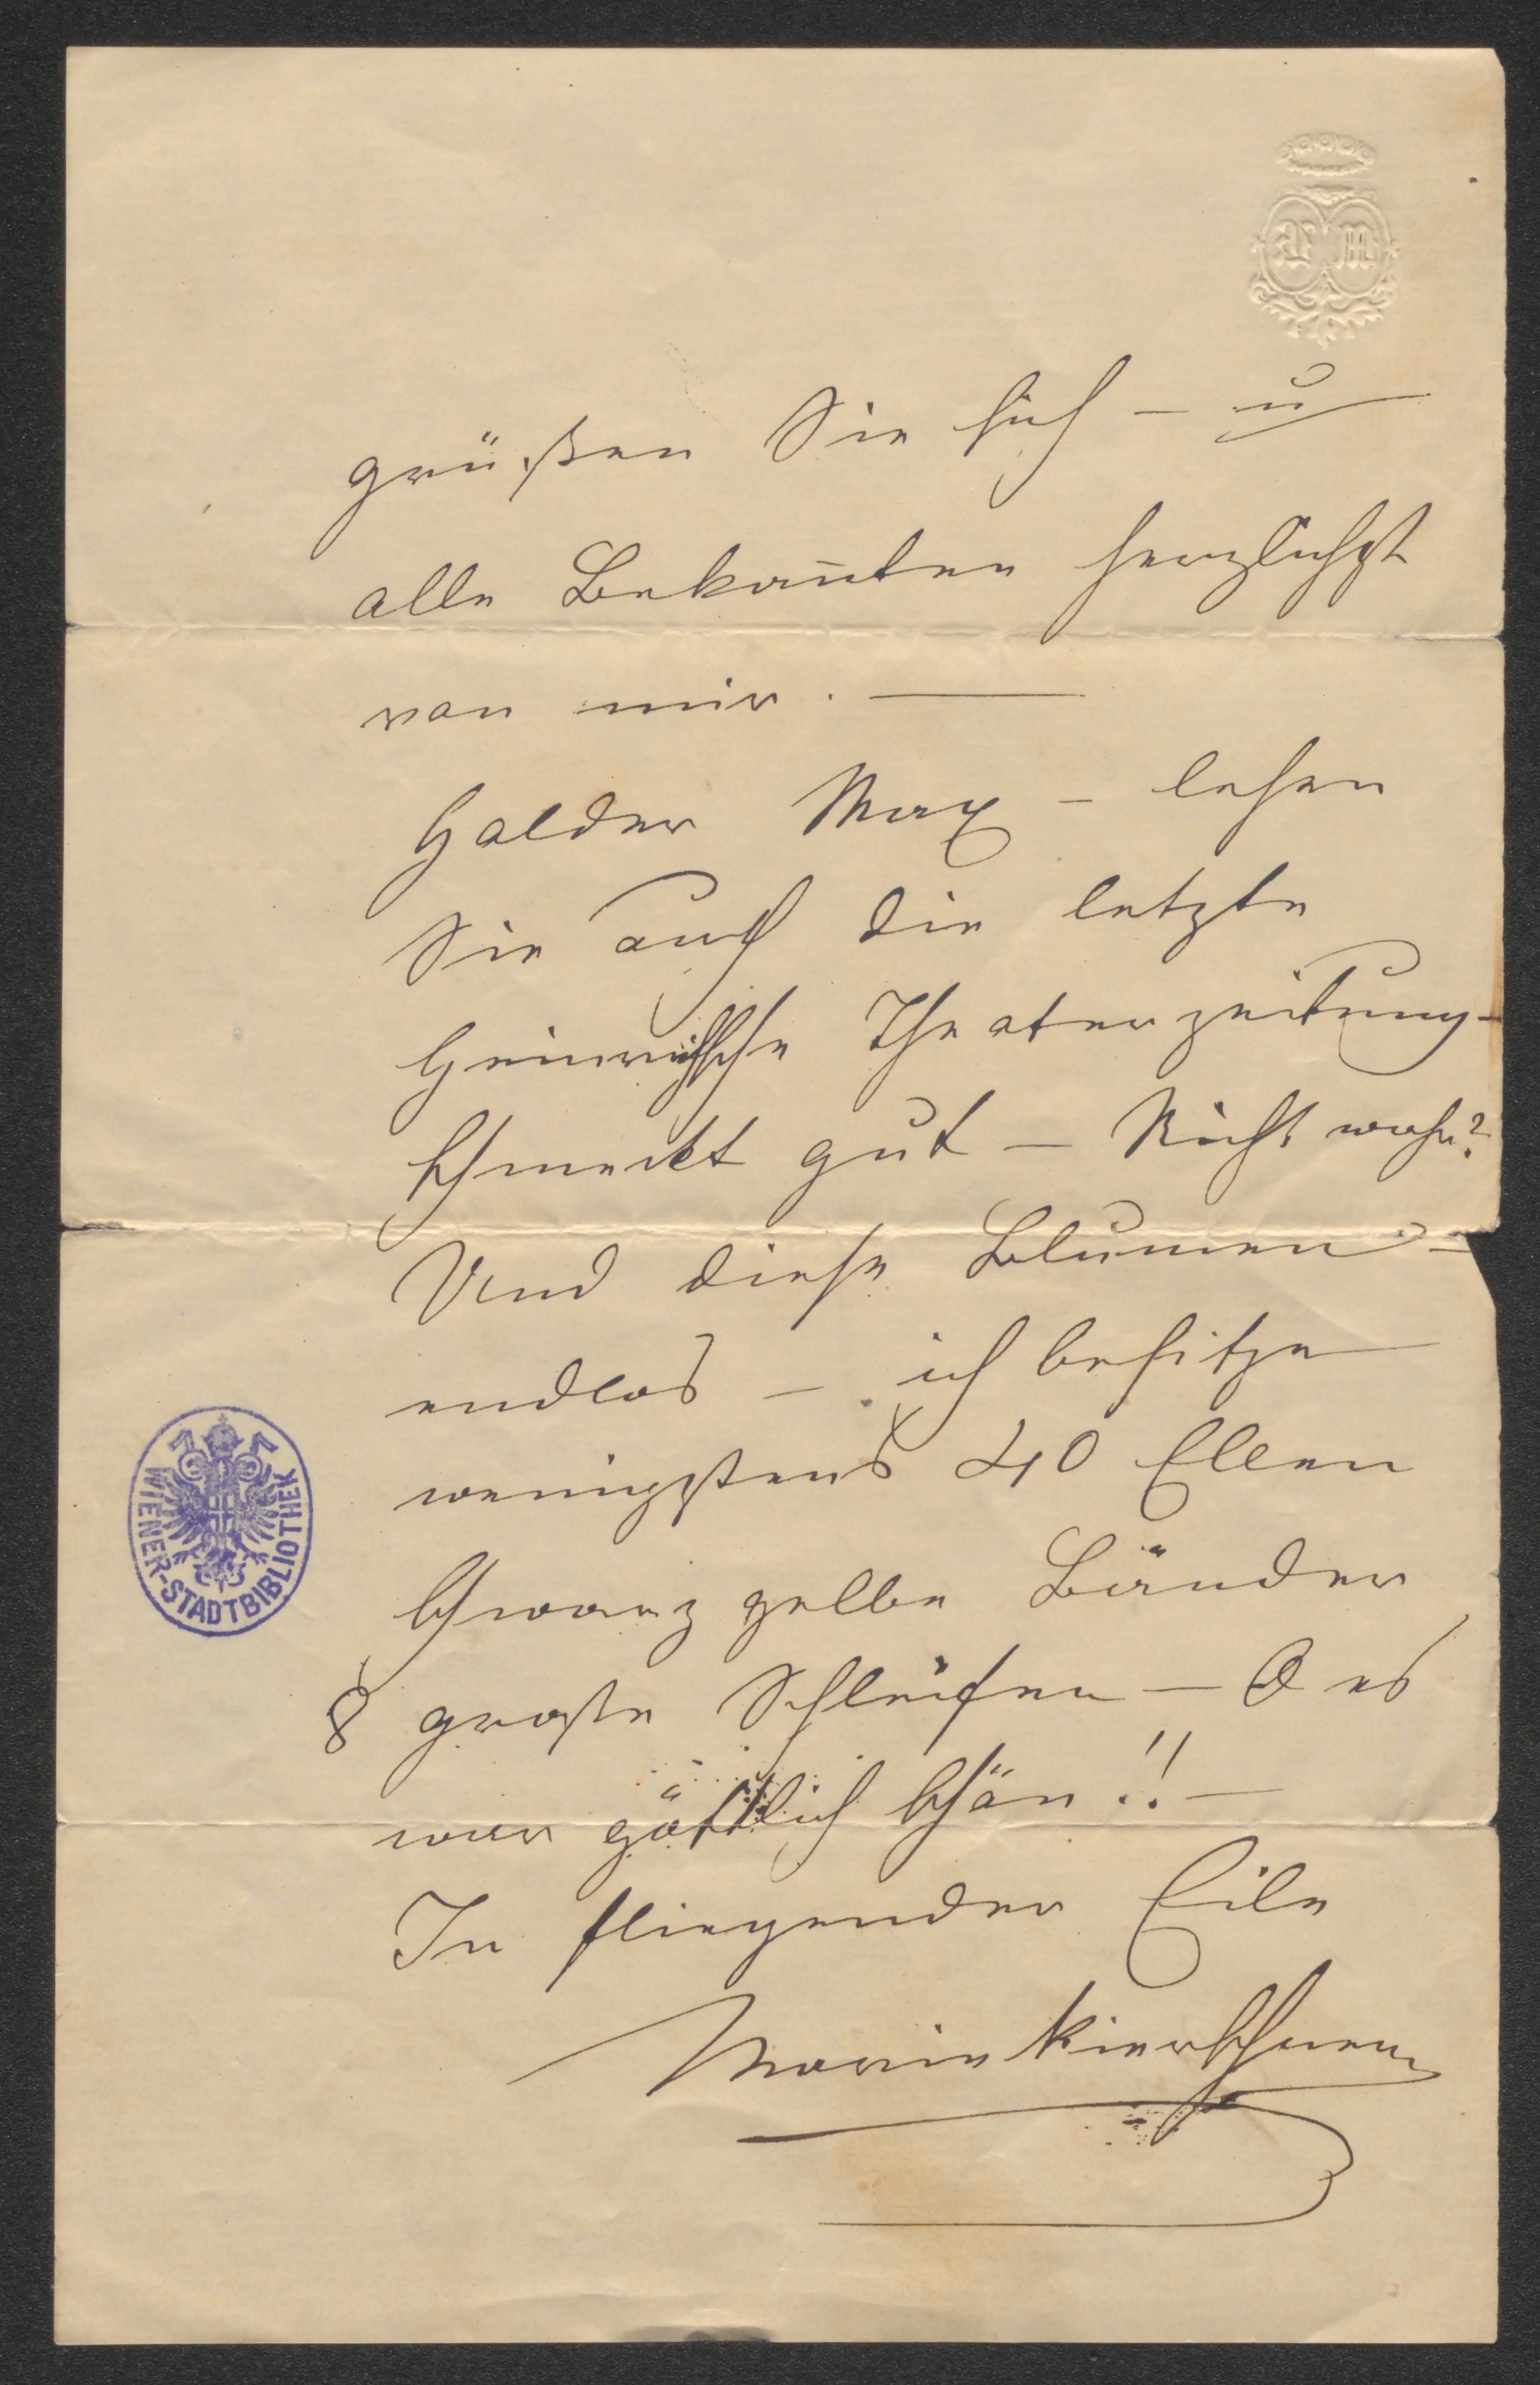 L M
grüßen Sie sich – u
alle Bekannten herzlichst
von mir. —
Holder Max – lesen
Sie auch die letzte
Heinrichsche Theaterzeitung –
schmeckt gut – Nicht wahr?
Und diese Blumen –
endlos – ich besitze
wenigstens 40 Ellen
schwarz gelbe Bänder
8 große Schleifen – O es
war göttlich schön!! –
In fliegender Eile
Marie Kierschner
WIENER-STADTBIBLIOTHEK